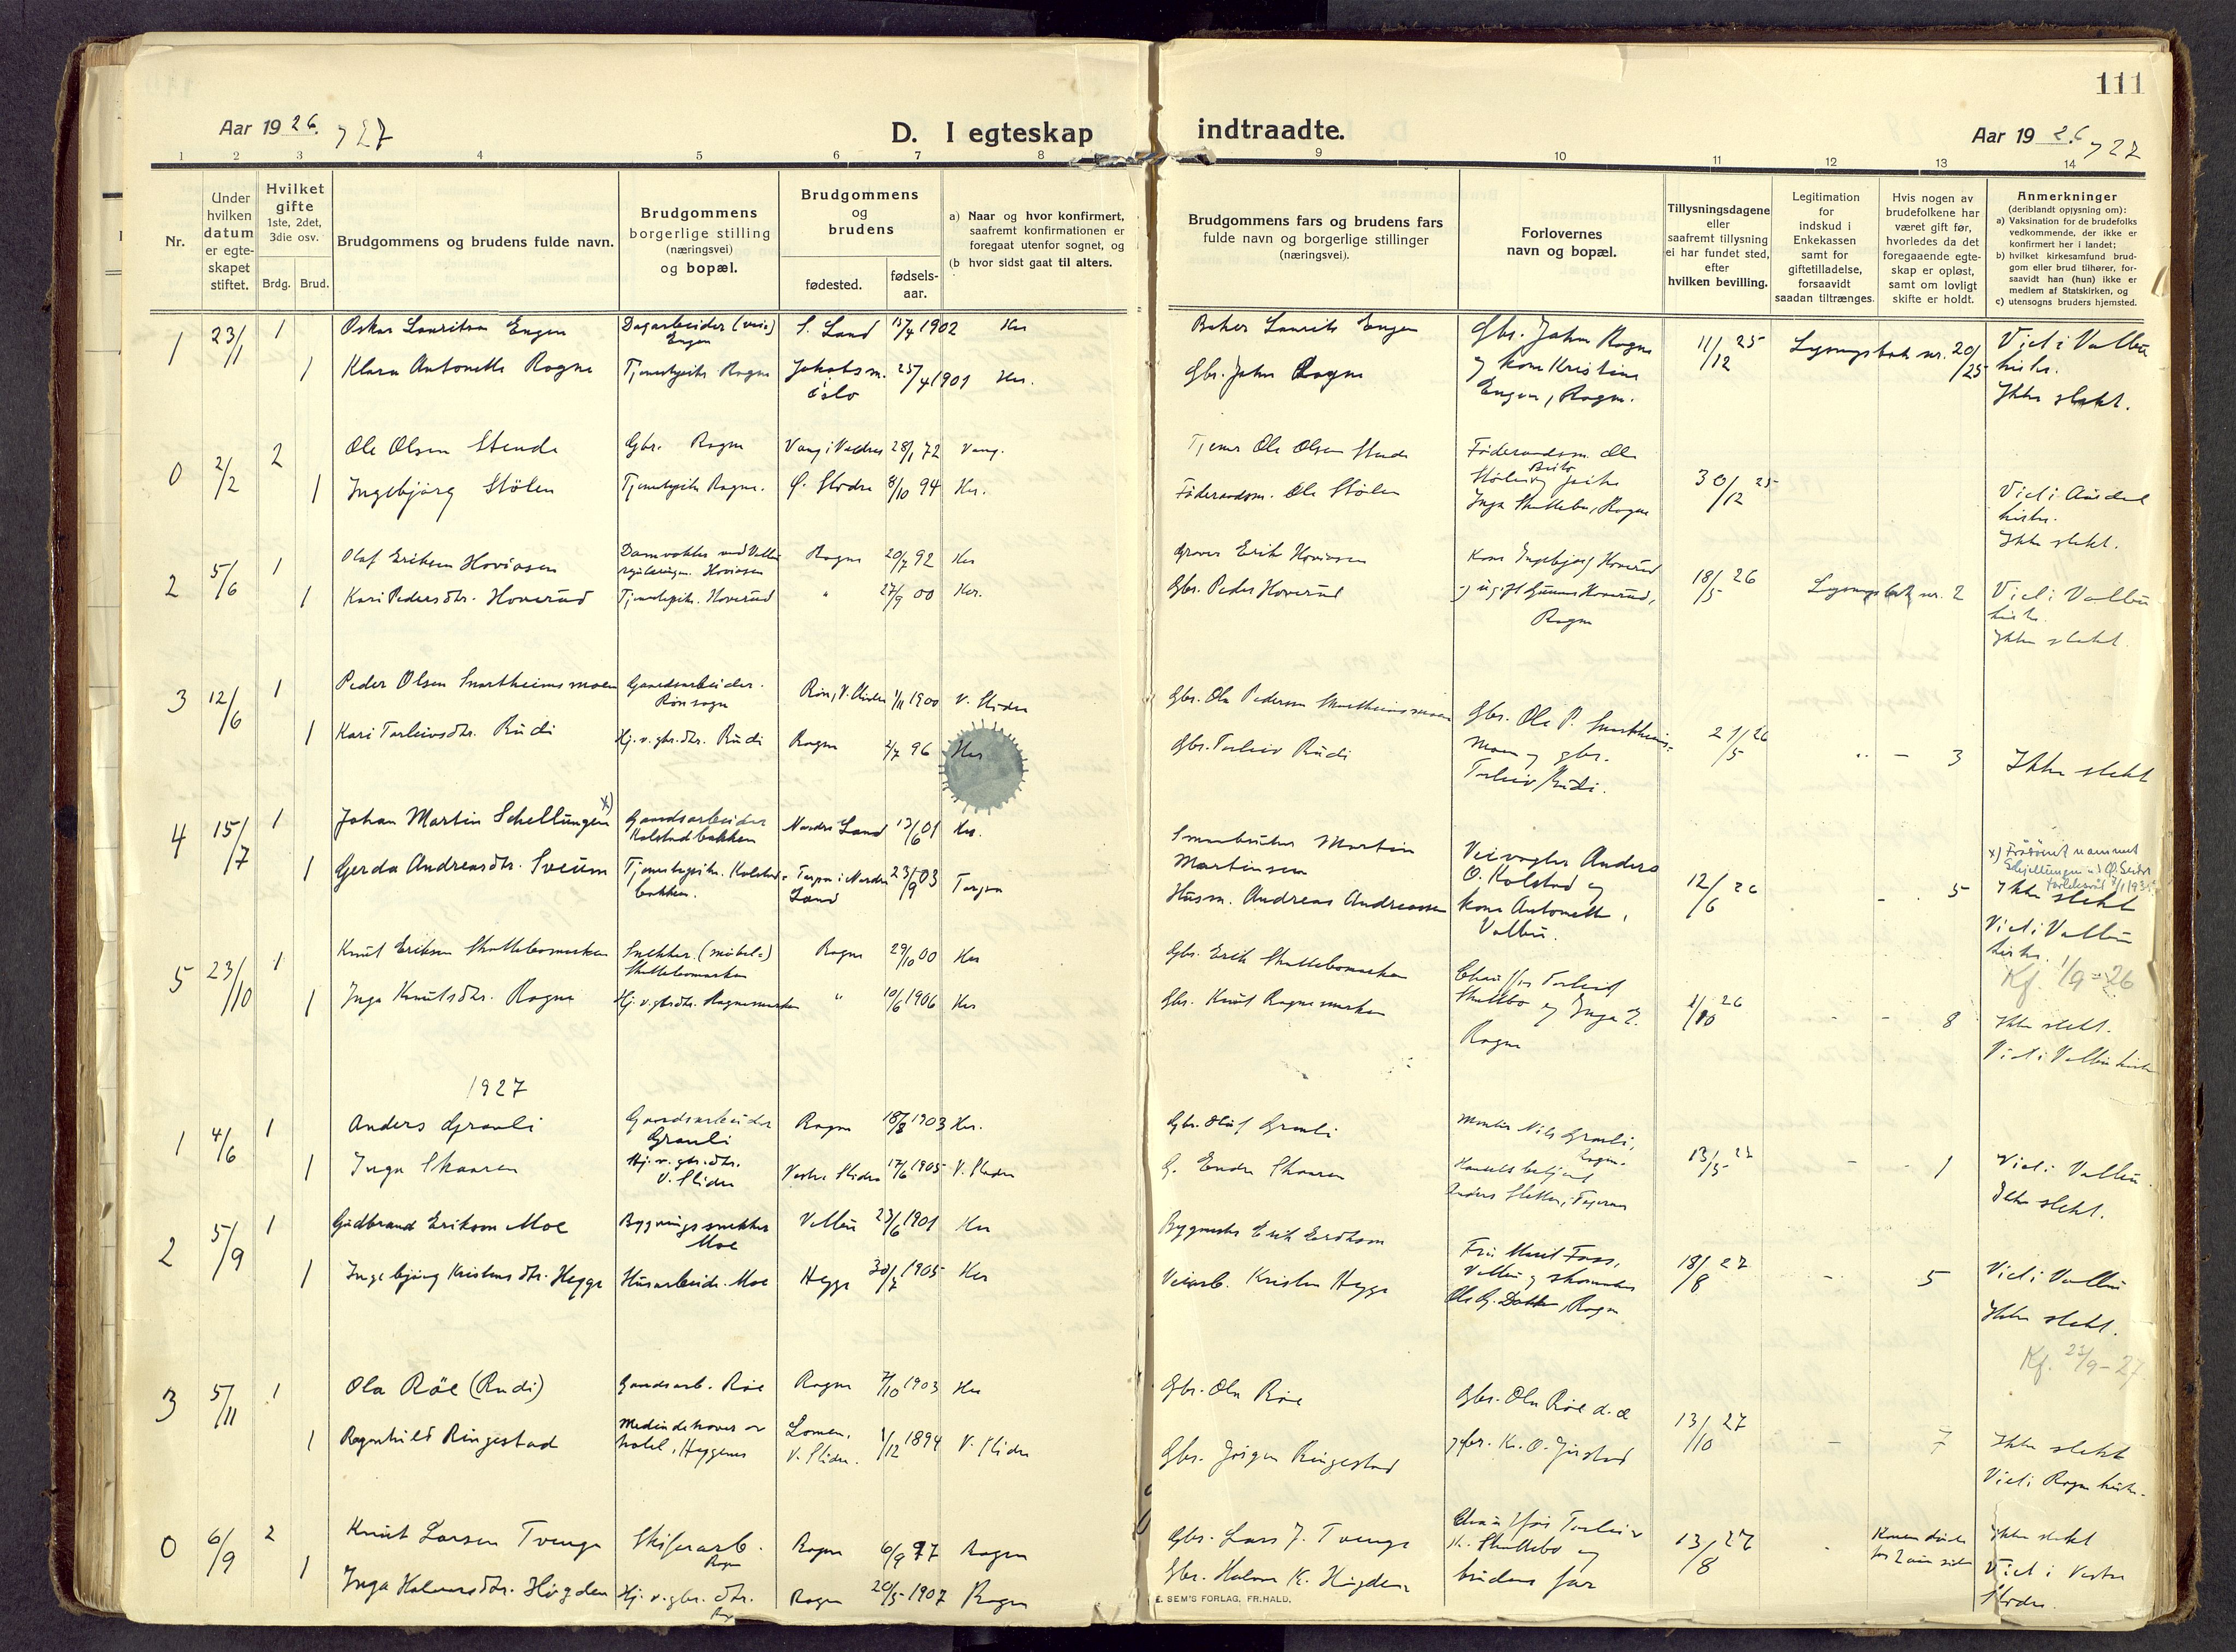 111
Aar 19 26, 27
D. I egteskap indtraadte.
Aar 19 26, 27
1 2 3 4 5 6 7 8 9 10 11 12 13 14
Nr.
Under hvilken datum er egte-skapet stiftet.
Hvilket gifte 1ste, 2det, 3die osv.
Brdg. Brud.
Brudgommens og brudens fulde navn.
Brudgommens borgerlige stilling (næringsvei) og bopæl.
Brudgommens og brudens
fødested.
fødsels-aar.
a) Naar og hvor konfirmert, saafremt konfirmationen er foregaat utenfor sognet, og
(b hvor sidst gaat til alters.
Brudgommens fars og brudens fars fulde navn og borgerlige stillinger (næringsvei).
Forlovernes navn og bopæl.
Tillysningsdagene eller saafremt tillysning ei har fundet sted, efter hvilken bevilling.
Legitimation for indskud i Enkekassen samt for giftetilladelse, forsaavidt saadan tiltrænges.
Hvis nogen av brudefolkene har været gift før, hvorledes da det foregaaende egte-skap er opløst, samt om lovligt skifte er holdt.
Anmerkninger (deriblandt oplysning om):
a) Vaksination for de brudefolks vedkommende, der ikke er konfirmert her i landet;
b) hvilket kirkesamfund brud-gom eller brud tilhører, for-saavidt han (hun) ikke er medlem af Statskirken, og
c) utensogns bruders hjemsted.
1 23/1 1 Oskar Lauritsen Engen Dagarbeider (vei=) Engen S. Land 1902 Her Baker Laurits Engen Gbr. John Rogne 11/12 25 Lysningsbok nr. 20/25 Viet i Volbu
1 Klara Antonette Rogne Tjenestepike Rogne Jakobs m. Oslo 25/4 1901 Her. Gbr. John Rogne og kone Kristine kirke.
Engen, Rogne. Ikke slekt.
0 2/2 2 Ole Olsen Stende Gbr. Rogne Vang i Valdres 28/1 72 Vang. Tjener Ole Olsen Stende Føderaadsm. Ole
1 Ingebjørg Stölen Tjenestepike Rogne. Ø. Slidre 8/10 94 Her. Föderaadsm. Ole Stölen Stölen og pike Berte 30/12 25 Viet i Aurdal
Inga Skattebu, Rogne kirke.
Ikke slekt.
2 5/6 1 Olaf Eriksen Hoviosen Damvokter ved Volbu reguleringen. Hoviosen Rogne 20/7 92 Her Graver Erik Hoviosen Kone Ingebjørg Hoverud 18/5 26 Lysningsbok nr. 2 Viet i Volbu
1 Kari Pedersdtr. Hoverud Tjenestepike. Hoverud " 27/9 00 Her. Gbr. Peder Hoverud og ugift Gunnar Hoverud, kirke.
Rogne Ikke slekt.
3 12/6 1 Peder Olsen Snortheimsmoen Gaardsarbeider. Rönsogn Røn, V. Slidre 1/11 1900 V. Slidre Gbr. Ole Pedersen Snortheimsmoen Gbr. Ole P. Snortheims= 21/5 26 " — 3
1 Kari Torleivsdtr. Rudi Hj. v. gbr. dtr. Rudi Rogne 2/7 96 Her Gbr. Torleiv Rudi moen og gbr. Ikke slekt
Torleiv Rudi.
4 15/7 1 Johan Martin Schellungen x) Gaardsarbeider Kolstadbakken Nordre Land 13/6 01 Her. Smaabruker Martin Martinsen Veivogter Anders x) Schjellungen
1 Gerda Andreasdtr. Sveum Tjenestepike. Kolstad=bakken. Torpa i Nordre Land 23/9 03 Torpa Husm. Andreas Andreassen O. Kolstad og 12/6 26 5 Ikke slekt
kone Antonette, Volbu. Viet i Volbu kirke.
Kf. 1/9 - 26
5 23/10 1 Knut Eriksen Skattebomarken Snekker. (møbel=) Skattebomarken Rogne 29/10 00 Her Gbr. Erik Skattebomarken Chauffør Torleif
1 Inga Knutsdtr. Rogne Hj. v. gbr. dtr. Rognemarken " 10/6 1906 Her Gbr. Knut Rognemarken Skattebo og Inga E. Rogne 1/10 26 - - 8 Ikke slekt.
Viet i Volbu kirke
1927
1 4/6 1 Anders Granli Gaardsarbeider Granli Rogne 18/8 1903 Her. Gbr. Oluf Granli Nils Granli, Rogne.
1 Inga Skaaren Hj. v. gbr. dtr. V. Slidre Vestre Slidre 17/6 1905 V. Slidre G. Endre Skaaren Handelsbetjent 13/5 27 - - 1 Viet i Volbu
Anders Sletten, Fagernes Ikke slekt.
2 5/9 1 Gudbrand Eriksen Moe Bygningssnekker Moe Volbu 23/6 1901 Her Bygmester Erik Fru Marit Foss,
1 Ingebjørg Kristensdtr. Hegge Husarbeide. Moe Hegge 30/7 1905 Her Veiarb. Kristen Hegge Volbu og skomaker 18/8 27 - 5 Viet i Volbu
Ole G. Dokken, Rogne Ikke slekt.
Kf. 23/9 - 27
3 5/11 1 Ola Röe (Rudi) Gaardsarb. Röe Rogne 7/10 1903 Her Gbr. Ola Röe Gbr. Ola Röe d. e. 13/10 27
1 Ragnhild Ringestad Medindehaver av hotel, Heggenes Lomen, V. Slidre. 1/12 1894 V. Slidre Gbr. Jörgen Ringestad og gbr. Kr. O. - 7 Ikke slekt
Viet i Rogne kirke.
0 6/9 2 Knut Larsen Tvenge Skiferarb. Rogne Rogne 6/9 77 Rogne Gbr. Lars J. Tvenge Chauffør Torleiv 13/8 27 Konen døde for 2 aar siden Ikke slekt
1 Inga Halvorsdtr. Högden Hj. v. gbr. dtr. Rogne 20/5 1907 Rogne Gbr. Halvor K. Högden K. Skattebo og brudens far Viet i Vestre Slidre.
E. SEM'S FORLAG, FR.HALD.